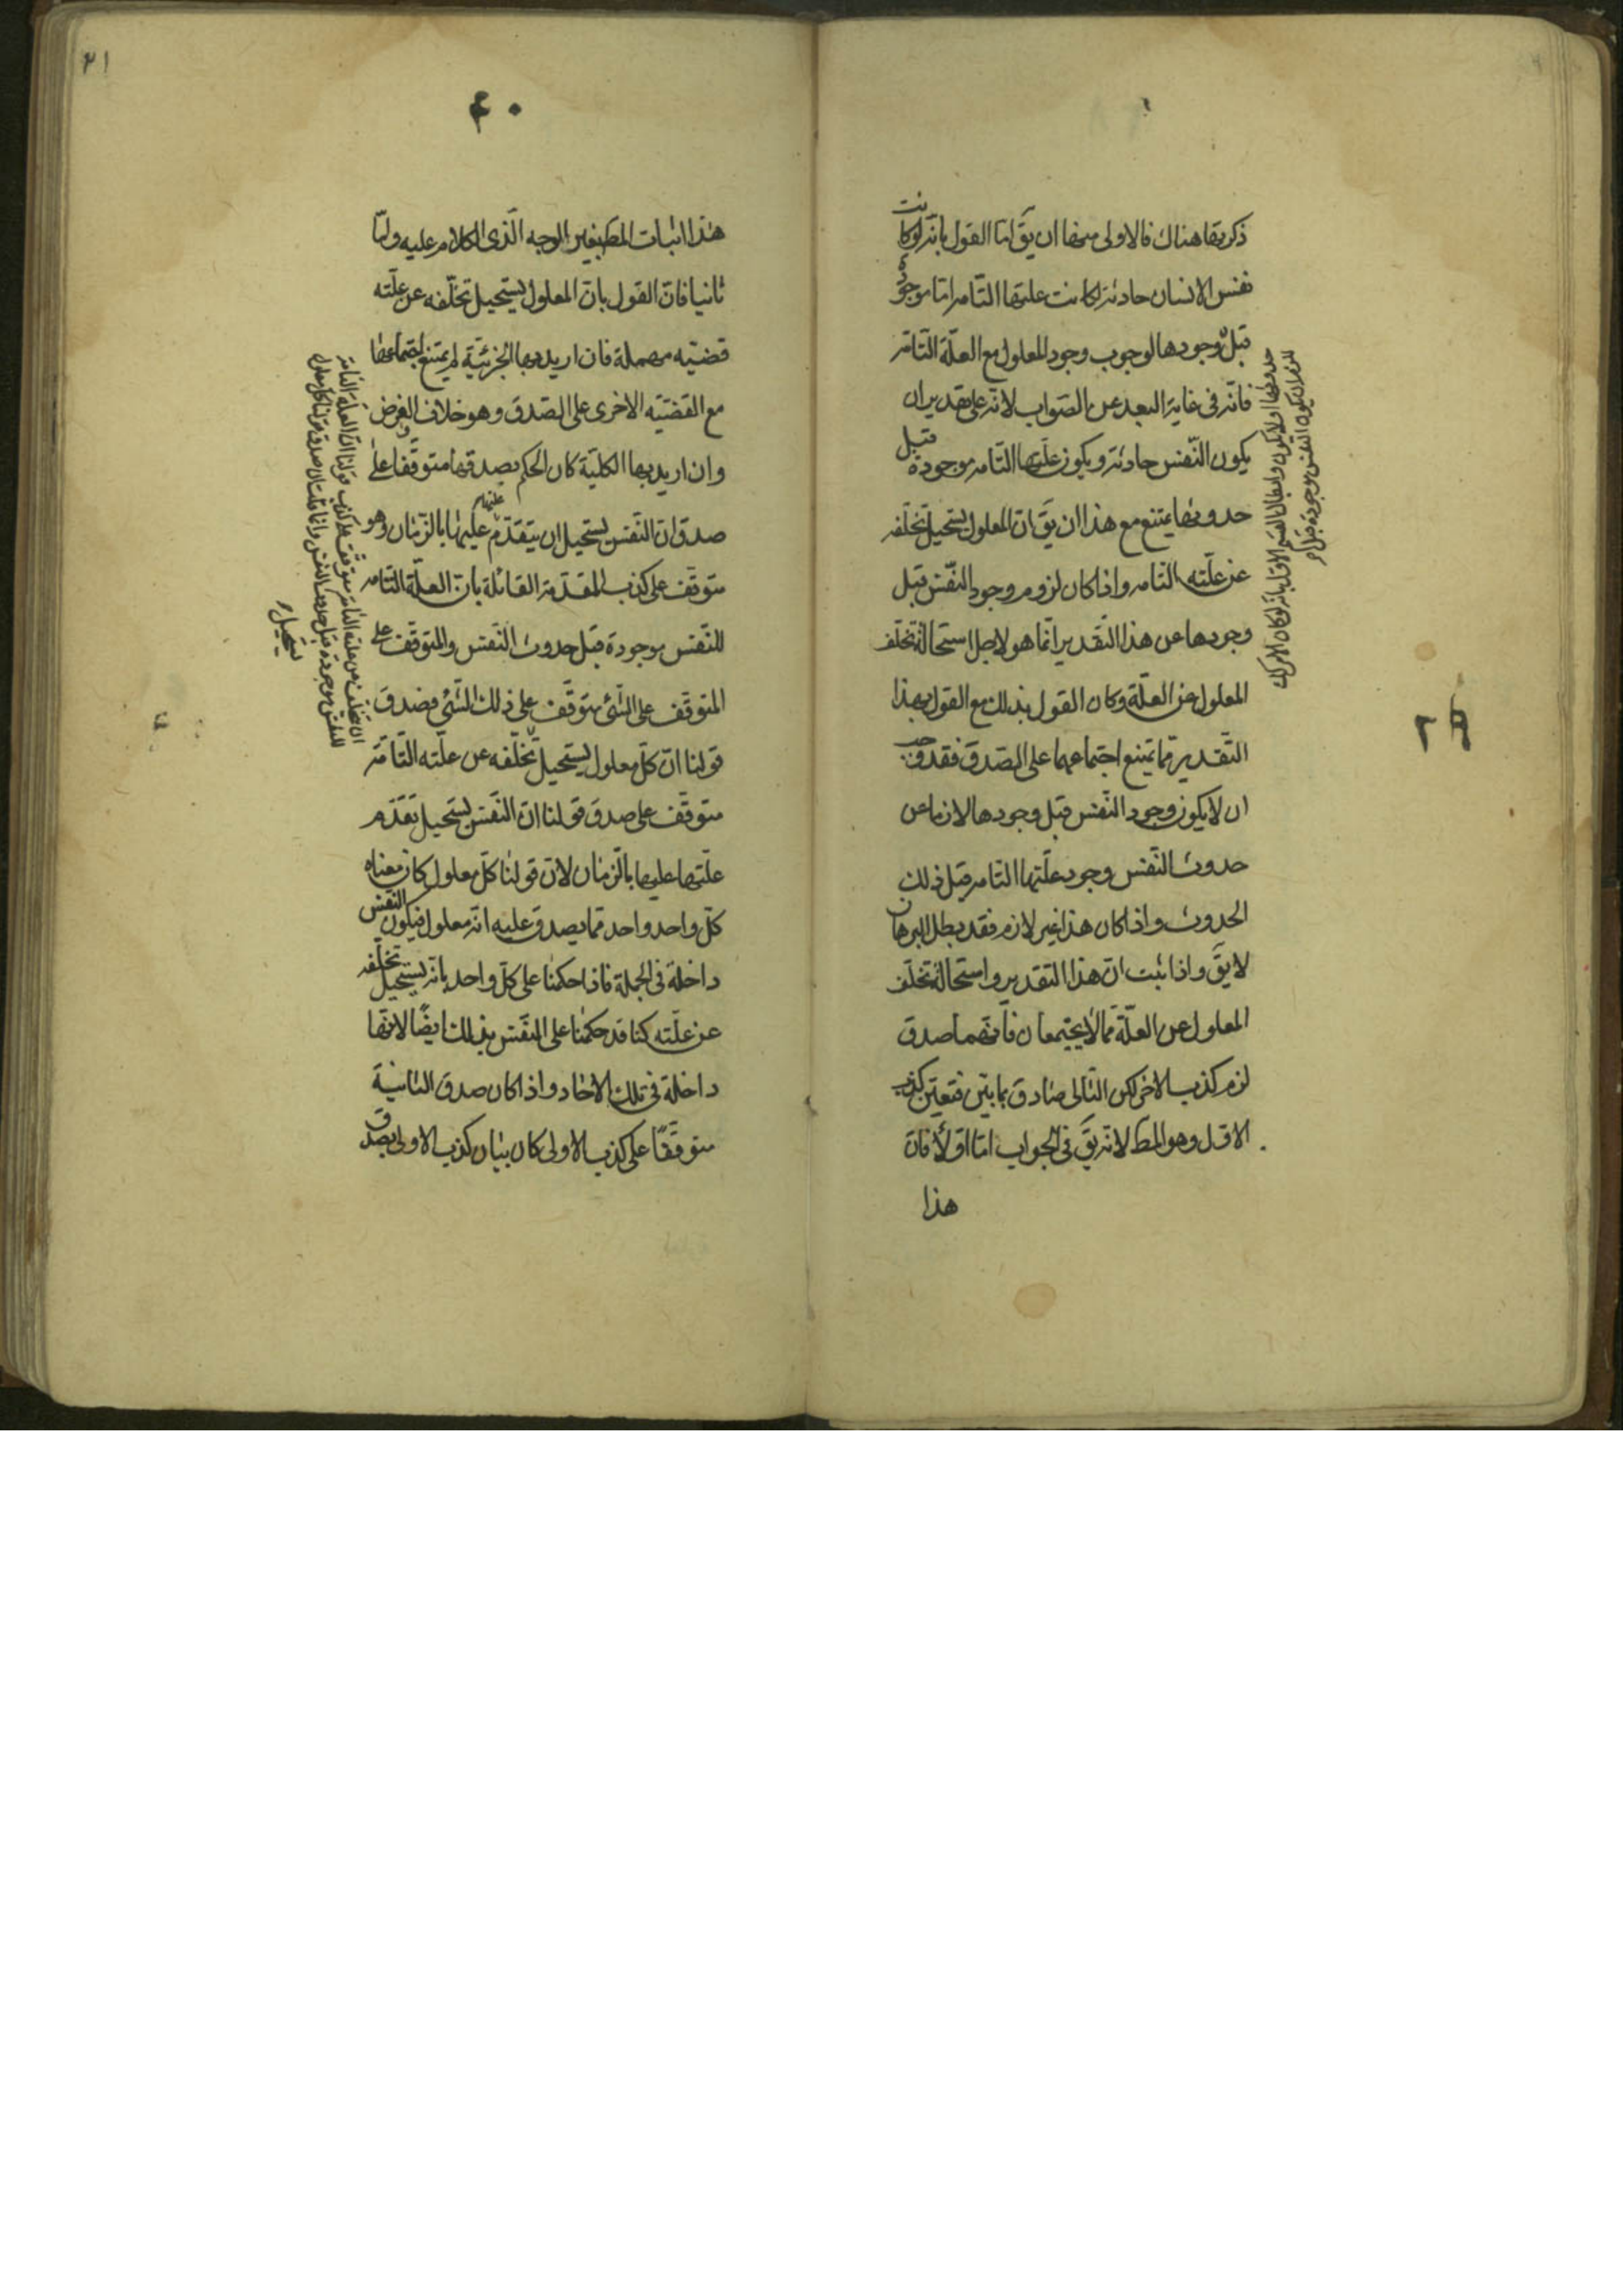 ذكرتها هناك فالاولى منها ان يقَ امّا القول بانّه لو كانت
نفس الانسان حادثة لكانت علتها التامة اما موجودة
قبل وجودها لوجوب وجود المعلول مع العلّة التّامّة
فانّه فى غاية البعد عن الصّواب لانّه على تقدير ان
يكون النّفس حادثة ويكون علّتها التامة موجودة قبل
حدوثها يمتنع مع هذا ان يقَ انّ المعلول يستحيل تخلّفه
عن علّته التّامة واذا كان لزوم وجود النّفس قبل
وجودها عن هذا التّقدير انّما هو لاجل استحالة تخلّف
المعلول عن العلّة وكان القول بذلك مع القول بهذا
التّقدير ممّا يمتنع اجتماعهما على الصّدق فقد وجب
ان لا يكون وجود النّفس قبل وجودها لازما عن
حدوث النّفس وجود علّتها التّامة قبل ذلك
الحدوث واذا كان هذا غير لازم فقد بطل البرهان
لا يقَ واذا ثبت انّ هذا التقدير واستحالة تخلّف
المعلول عن العلّة ممّا لا يجتمعان فايّهما صدق
لزم كذب الاخر لكن التّالى صادق بما بيّن فتعيّن كذب
الاوّل وهو المطَ لانّه يقَ فى الجواب امّا اوّلاً فانّ
هذا
٢٩
حدوثها او لا يكون وابطال القسم الاوّل بانّه لو كان الامر كذلك
للزم ان يكون النفس موجودة قبل
٢١
٤٠
هذا اثبات المطَ بغير الوجه الّذى الكلام عليه وامّا
ثانيا فانّ القول بانّ المعلول يستحيل تخلّفه عن علّته
قضيّه مهملة فان اريد بها الجزئيّة لم يمتنع اجتماعها
مع القضيّه الاخرى على الصّدق وهو خلاف الفرض
وان اريد بها الكليّة كان الحكم بصدقها متوقّفا على
صدق انّ النّفس يستحيل ان يتقدّم علّتها عليها بالزّمان وهو
متوقّف على كذب المقدّمة القائلة بانّ العلّة التّامة
للنّفس موجودة قبل حدوث النّفس والمتوقّف على
المتوقّف على الشّئ متوقّف على ذلك الشّئ فصدق
قولنا انّ كلّ معلول يستحيل تخلّفه عن علّته التّامّة
متوقّف على صدق قولنا انّ النّفس يستحيل تقدّم
علّتها عليها بالزّمان لانّ قولنا كلّ معلول كان معناه
كلّ واحد واحد ممّا يصدق عليه انّه معلول فيكون النّفس
داخلة فى الجملة فاذا حكمنا على كلّ واحد بانّه يستحيل تخلّفه
عن علّته كنا قد حكمنا على النّفس بذلك ايضًا لانّها
داخلة فى تلك الاحاد واذا كان صدق الثانية
متوقّفًا على كذب الاولى كان بيان كذب الاولى بصدق
وانّما قلنا انّ صدق قولنا كلّ معلول
يستحيل
ان تخلّف عن علّته التامّة متوقّف على كذب قولنا انّ العلّة التامّة
للنفس موجودة قبل حدوث النفس